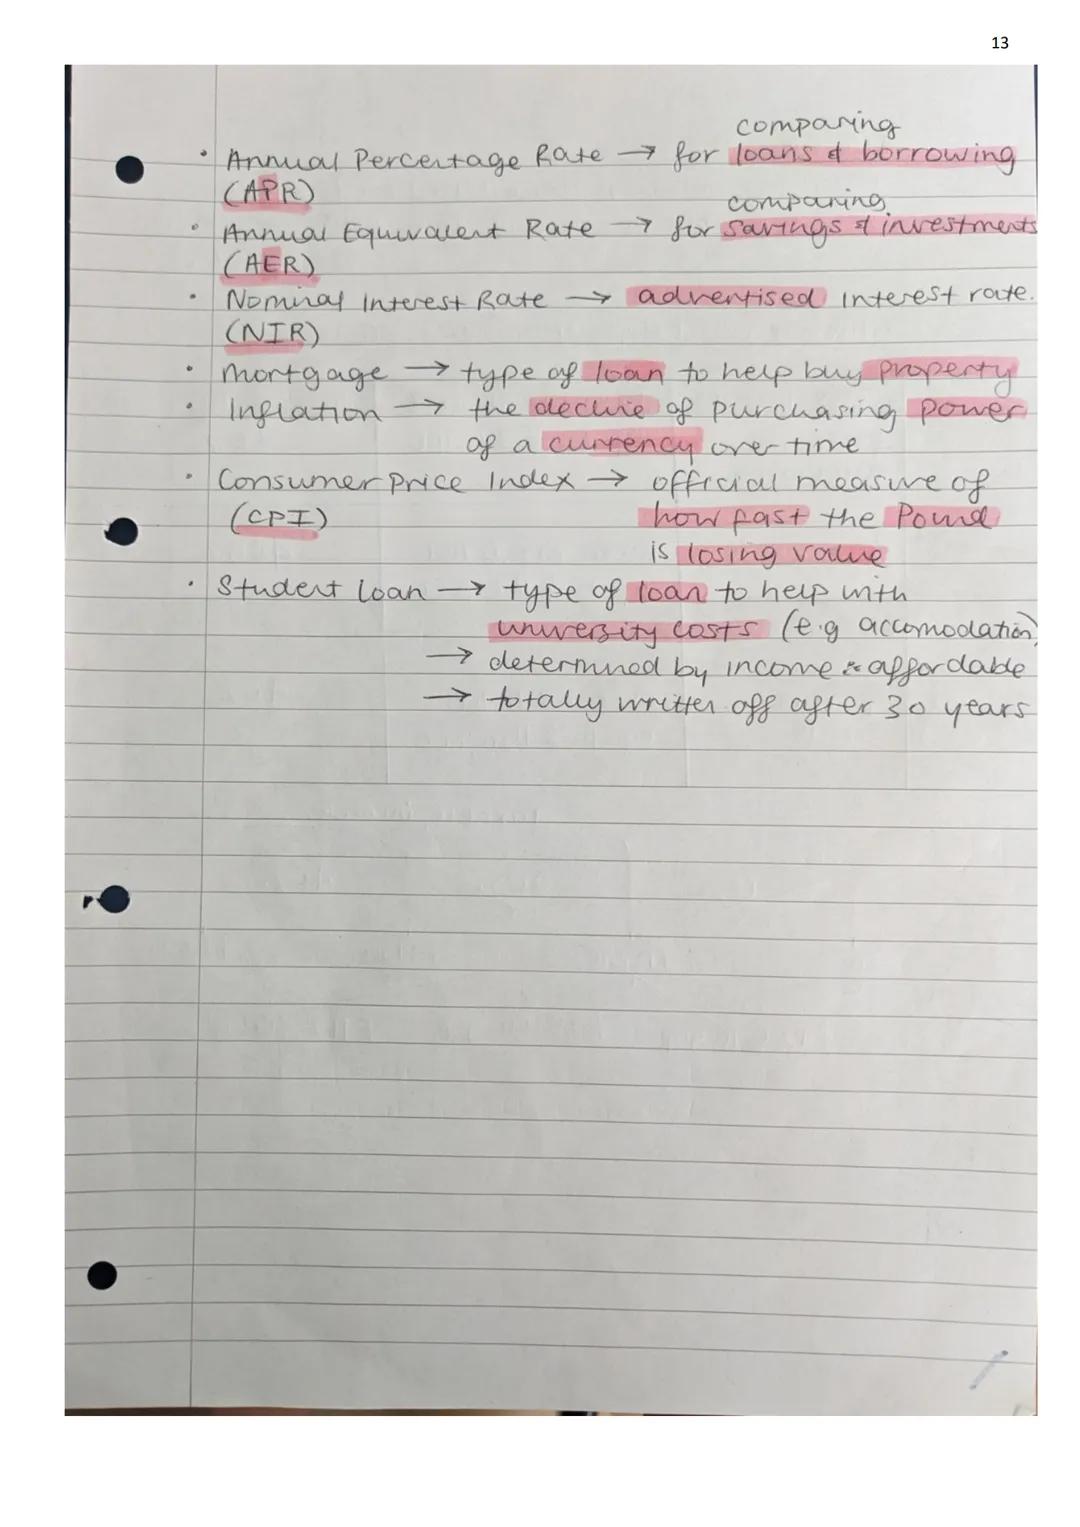 13
comparing
• Annual Percentage Rate → for loans & borrowing
(APR)
comparing
• Annual Equivalent Rate → for savings & investments
(AER)
• Nominal Interest Rate → advertised interest rate.
(NIR)
• Mortgage → type of loan to help buy property
• Inflation → the decline of purchasing power
of a currency over time
• Consumer Price Index → official measure of
(CPI) how fast the Pound
is losing value
• Student Loan → type of loan to help with
university costs (e.g accomodation)
→ determined by income & affordable
→ totally written off after 30 years